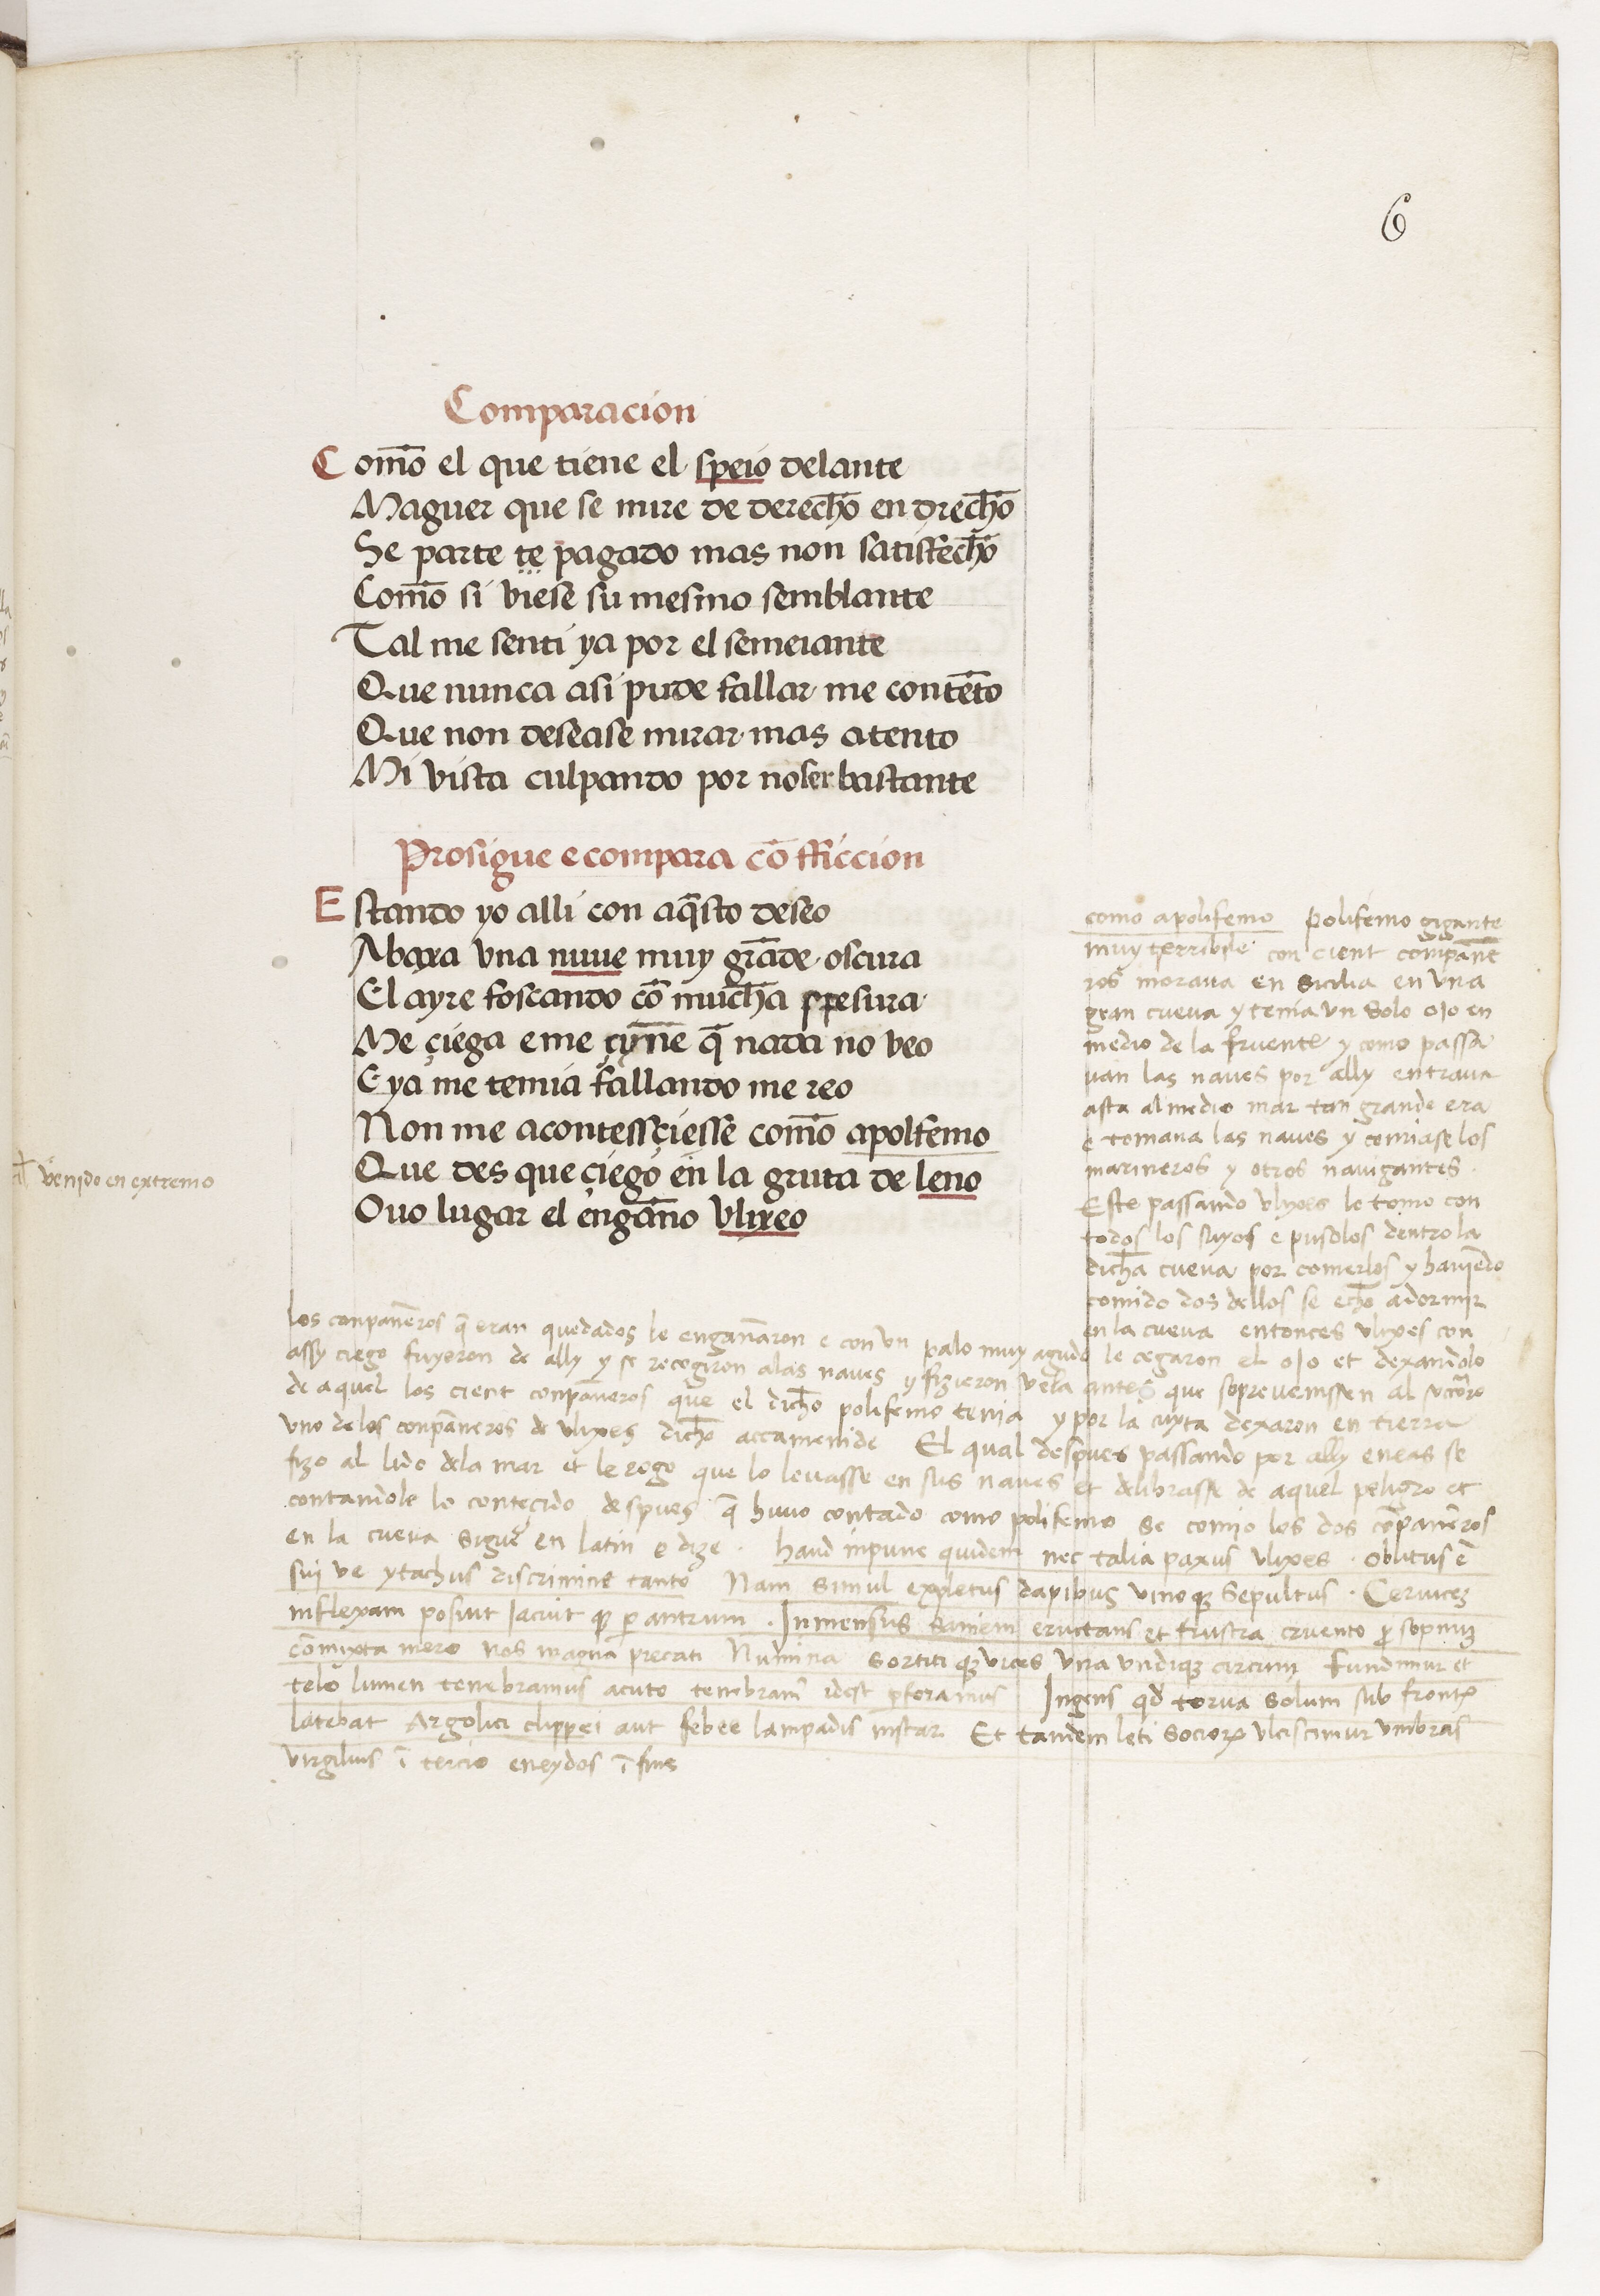 6
Comparacion
Com̄o el que tiene el speio delante
Maguer que se mire de derech̄o en drech̄o
Se parte te pagado mas non satisfech̄o
Com̄o si viese su mesmo semblante
Tal me senti ya por el semeiante
Que nunca asi pude fallar me contēto
Que non desease mirar mas atento
Mi vista culpando por no ser bastante
Prosigue e compara cō fficcion
Estando yo alli con aq̄sto deseo
Abaxa vna nuue muy grāde oscura
El ayre foscando cō much̄a spesura
Me çiega e me çyn̄e q̄ nada no veo
E ya me temia fallando me reo
Non me acontessçiesse com̄o apolifemo
Que des que çiego en la gruta de leno
Ouo lugar el engan̄o Vlixeo
venido en extremo
como apolifemo Polifemo gigante
muy terrible con cient compan̄e
ros moraua en Sicilia en vna
gran cueua y tenia vn solo ojo en
medio de la fruente y como passa
uan las naues por ally entraua
asta al medio mar tan grande era
e tomaua las naues y comiase los
marineros y otros nauigantes.
Este passando vlixes lo tomo con
todos los suyos e pusolos dentro la
dich̄a cueua por comerlos y hauiendo
comido dos dellos se ech̄o adormir
en la cueua entonces vlixes con
los conpan̄eros q̄ eran quedados le engan̄aron e con vn palo muy agudo le cegaron el ojo et dexandolo
assy ciego fuyeron de ally y se recogiron alas naues y fizieron vela antes que sopreuenissen al socōro
de aquel los cient conpan̄eros que el dich̄o polifemo tenia y por la cuyta dexaron en tierra
vno de los conpan̄eros de vlixes dich̄o accamenide El qual despues passando por ally eneas se
fizo al lido dela mar et le rogo que lo leuasse en sus naues et delibrasse de aquel peligro et
contandole lo contecido despues q̄ huuo contado como polifemo se comio los dos cōpan̄eros
en la cueua sigue en latin e dize. haud inpune quidem nec talia paxus vlixes. oblitus ē
sui ve ytachus discrimine tanto Nam simul expletus dapibus vinoqꝫ sepultus. Ceruicēꝫ
inflexam posuit iacuit qꝫ ꝑ antrum. Inmensus saniem eructans et frustra cruento ꝑ sopnuꝫ
cōmyxta mero nos magna precati Numina sortiti qꝫ vices vna vndiqꝫ circum fundimur et
telo lumen tenebramus acuto tenebram̄ idest ꝑforamus Ingens qd̄ torua solum sub fronte
latebat Argolici clippei aut febee lampadis instar Et tandem leti socioꝝ vlciscimur vmbras
virgilius ī tercio eneydos ī fine